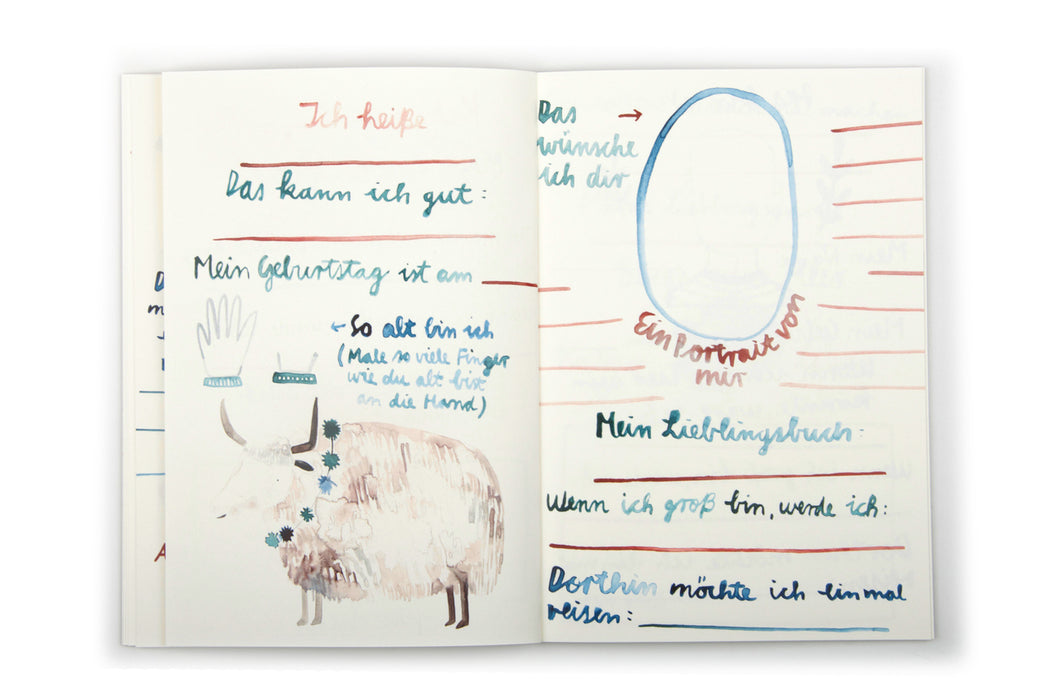 Ich heiße
Das kann ich gut:
Mein Geburtstag ist am
So alt bin ich
(Male so viele Finger
wie du alt bist
an die Hand)
Das
wünsche
ich dir
Ein Portrait von
mir
Mein Lieblingsbuch:
Wenn ich groß bin, werde ich:
Dorthin möchte ich einmal
reisen: